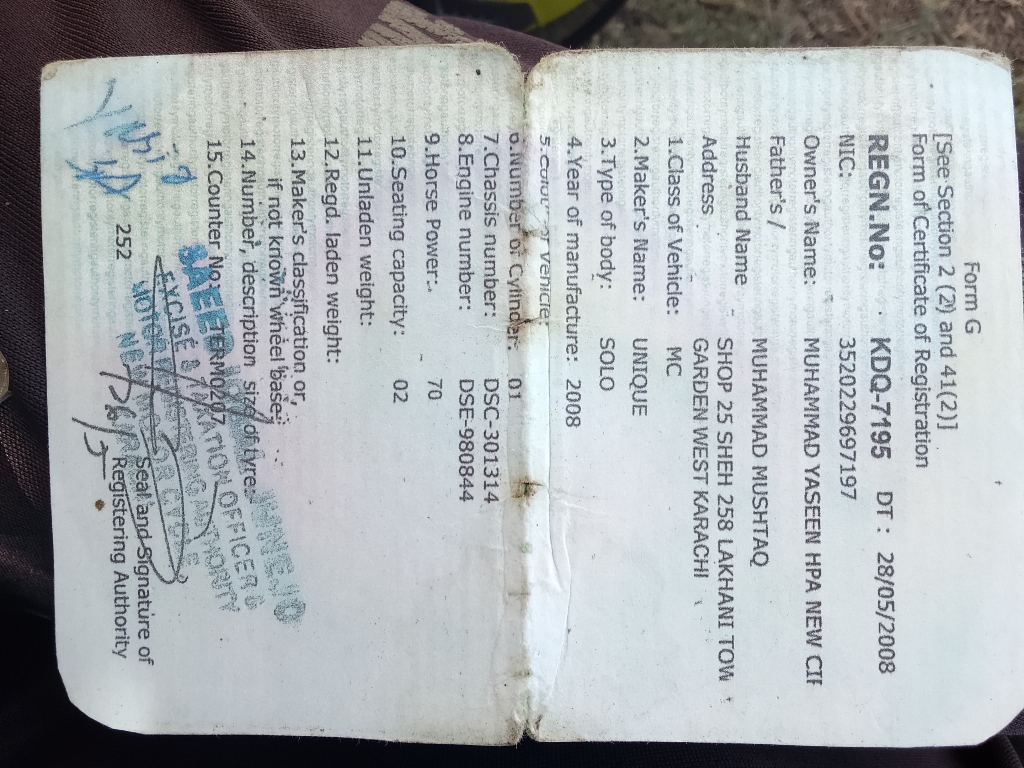 Form G
[See Section 2 (2) and 41(2)]
Form of Certificate of Registration
REGN.No: KDQ-7195 DT : 28/05/2008
NIC: 3520229697197
Owner's Name: MUHAMMAD YASEEN HPA NEW
Father's /
Husband Name MUHAMMAD MUSHTAQ
Address SHOP 25 SHEH 258 LAKHANI TOW
GARDEN WEST KARACHI
1.Class of Vehicle: MC
2.Maker's Name: UNIQUE
3.Type of body: SOLO
4.Year of manufacture: 2008
5.Colour of vehicle
6.Number of Cylinder 01
7.Chassis number: DSC-301314
8.Engine number: DSE-980844
9.Horse Power: 70
10.Seating capacity: 02
11.Unladen weight:
12.Regd. laden weight:
13.Maker's classification or,
if not known wheel base:
14.Number, description size of tyre
15.Counter No TERM0207
SAEED
EXCISE & TAXATION OFFICER &
MOTOR REGISTERING AUTHORITY
252
Seal and Signature of
Registering Authority